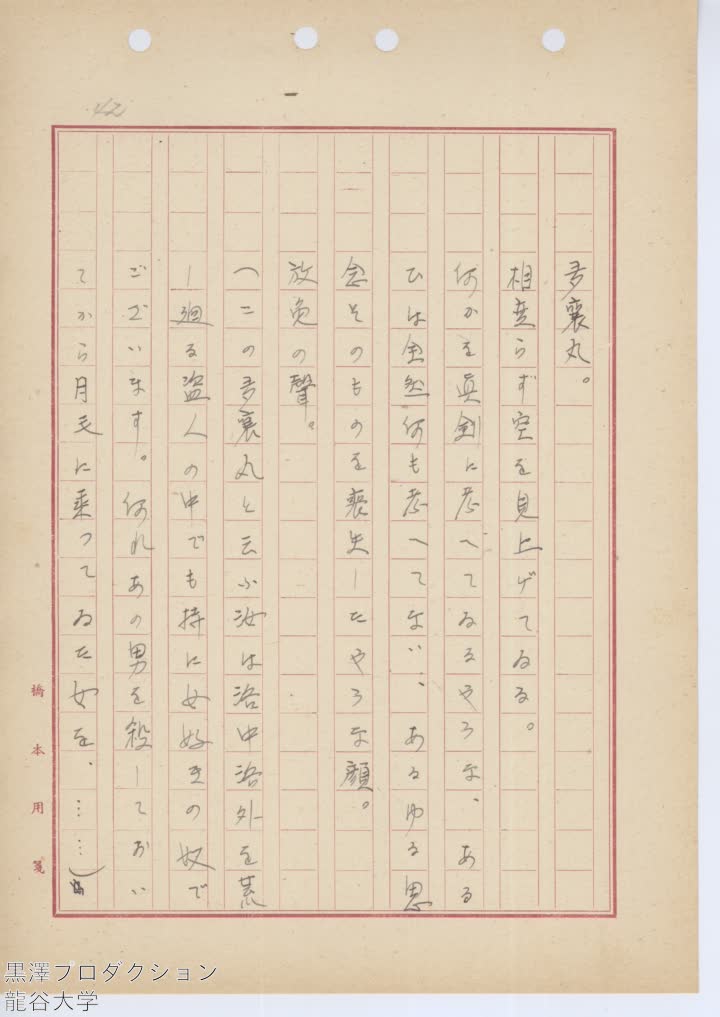 42
多襄丸。
相変らず空を見上げてゐる。
何かを真剣に考へてゐるやうな、ある
ひは全然何も考へてない、あるゆる思
念そのものを喪失したやうな顔。
放免の聲。
(この多襄丸と云ふ汝は洛中洛外を荒
し廻る盗人の中でも持に女好きの奴で
ございます。何れあの男を殺しておい
てから月毛に乗つてゐた女を、……)
橋本用箋
黒澤プロダクション
龍谷大学